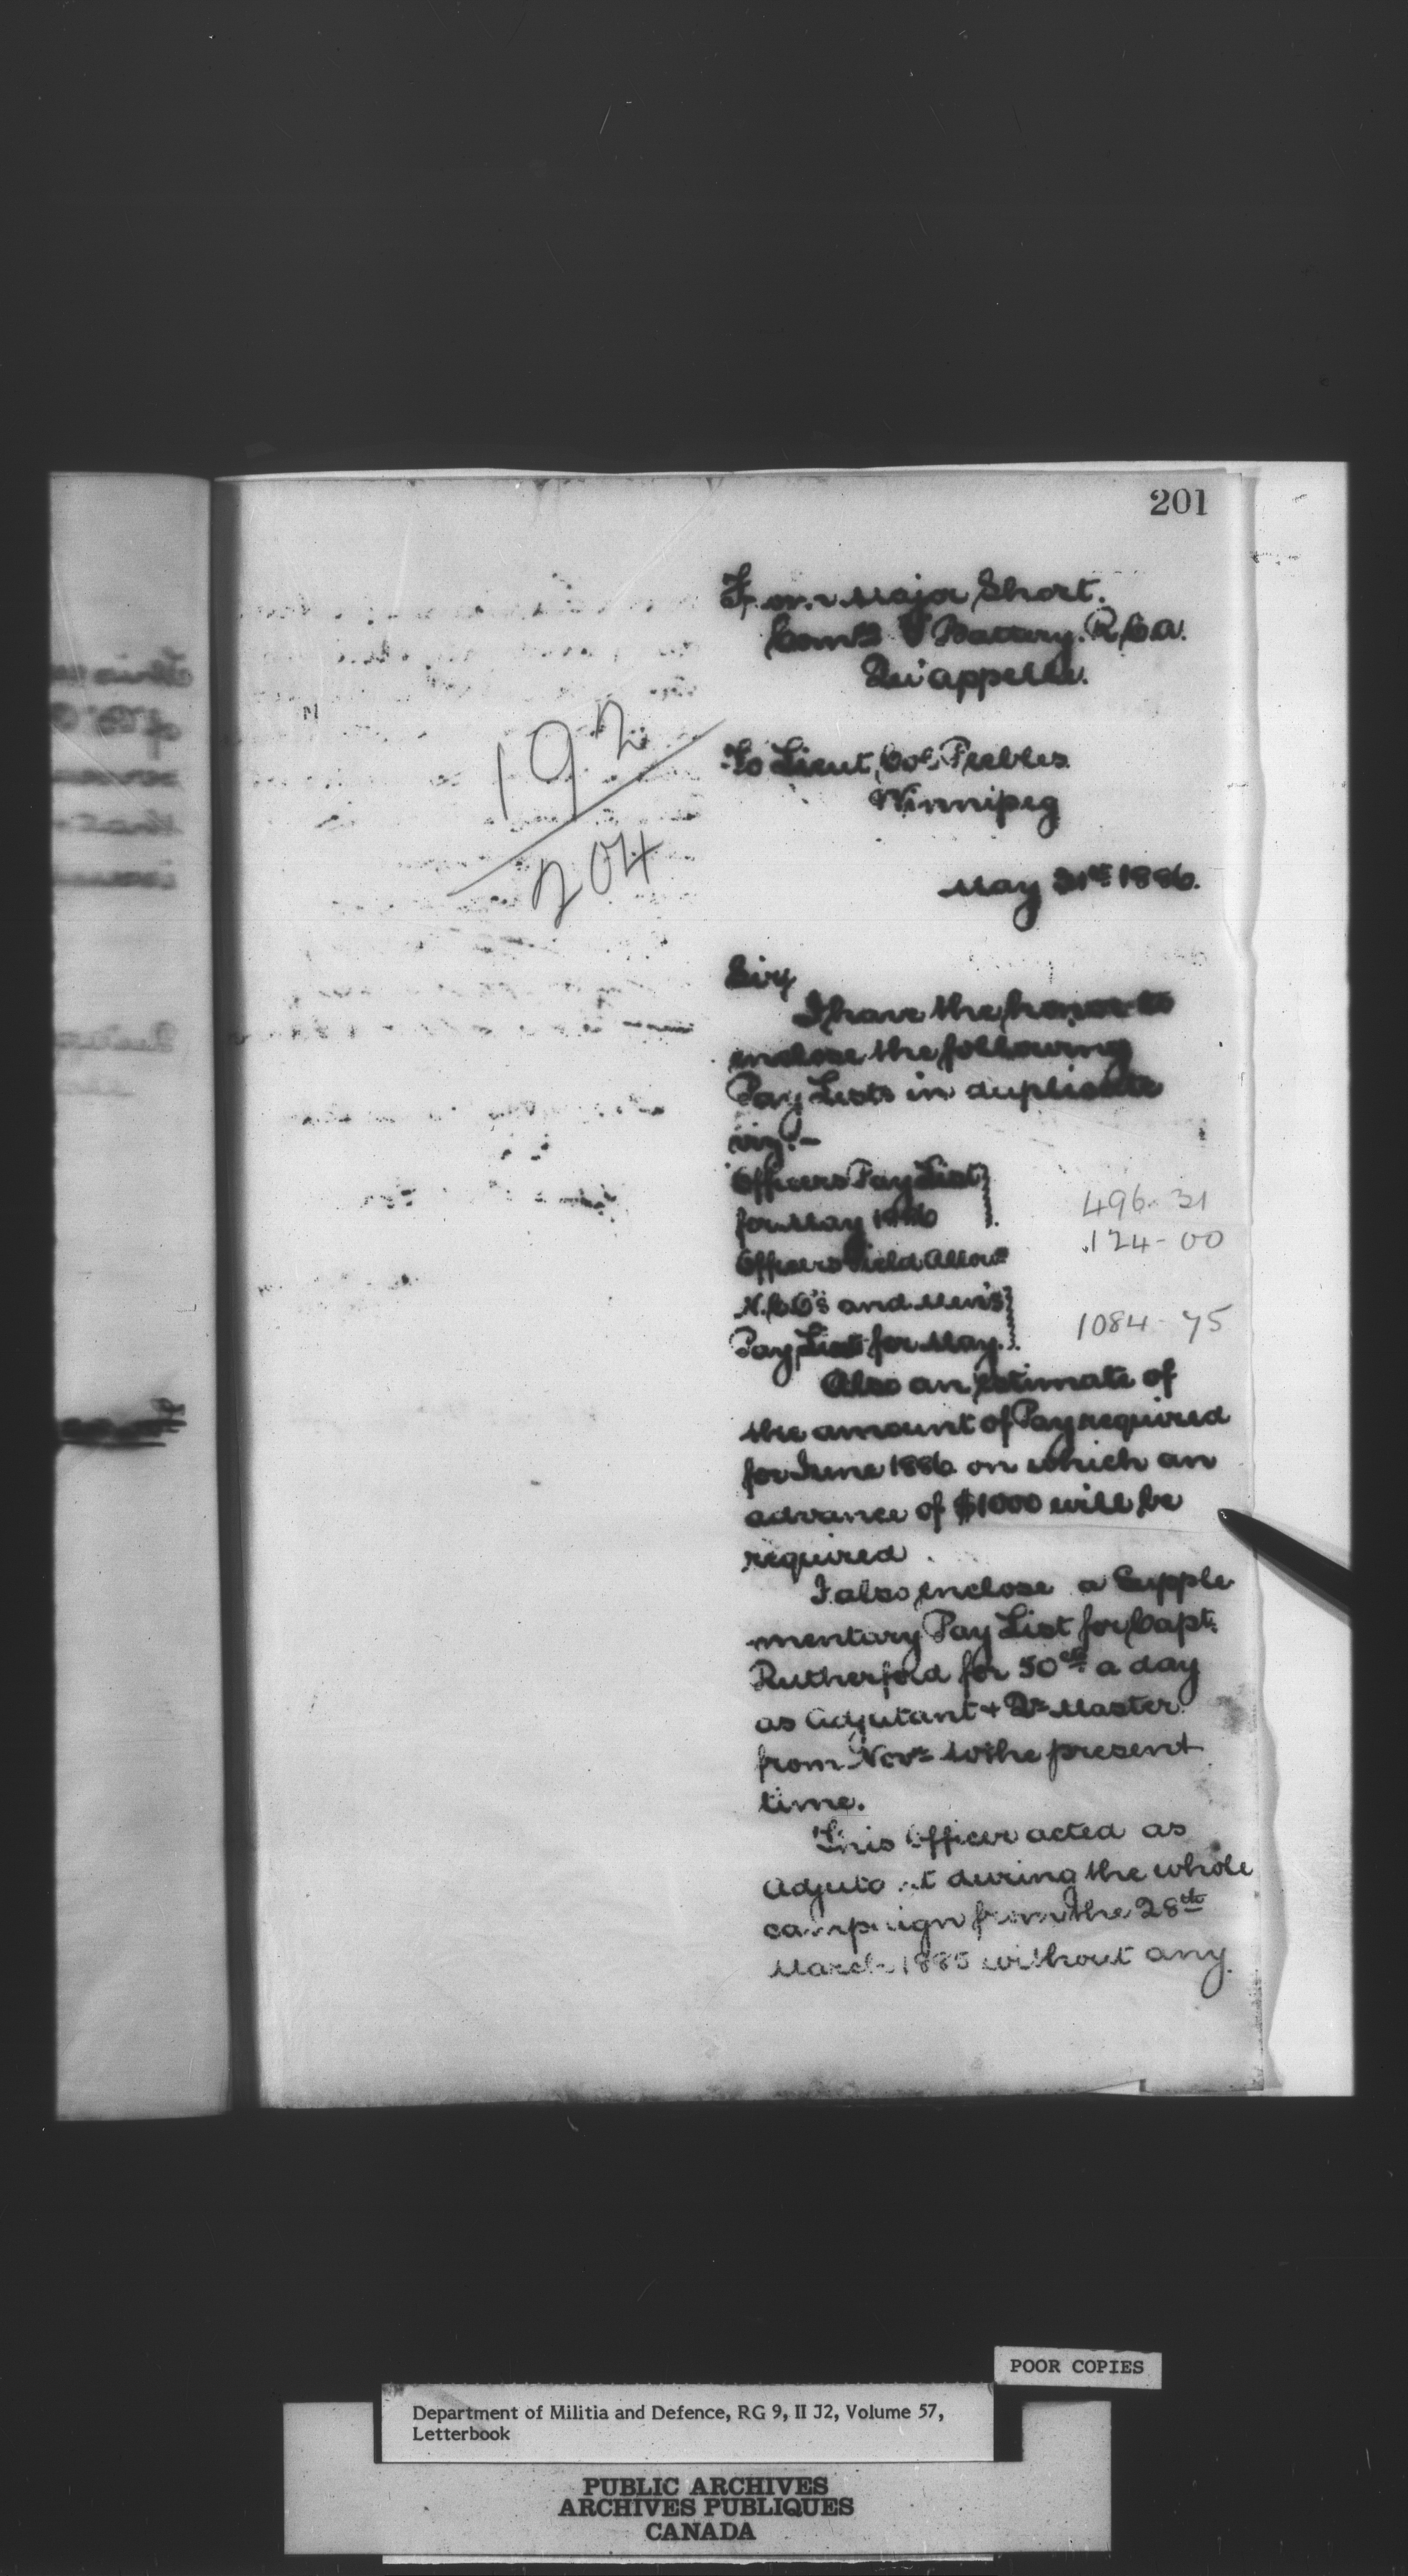 201
From Major Short.
Comdg Battery. R.C.A.
Qu'appelle.
192
204
To Lieut. Col. Peebles
Winnipeg
May 31st 1886.
Sir,
I have the honor to
enclose the following
Pay Lists in duplicate
viz:-
Officers Pay List
for May 1886
496-31
Officers Field Allow
124-00
N.C.O's and Men's
Pay List for May.
1084-75
Also an estimate of
the amount of Pay required
for June 1886 on which an
advance of $1000 will be
required.
I also enclose a Supple
mentary Pay List for Capt.
Rutherford for 50cts a day
as Adjutant + Qr Master
from Novr to the present
time.
This Officer acted as
Adjutant during the whole
campaign from the 28th
March 1885 without any
POOR COPIES
Department of Militia and Defence, RG 9, II J2, Volume 57,
Letterbook
PUBLIC ARCHIVES
ARCHIVES PUBLIQUES
CANADA